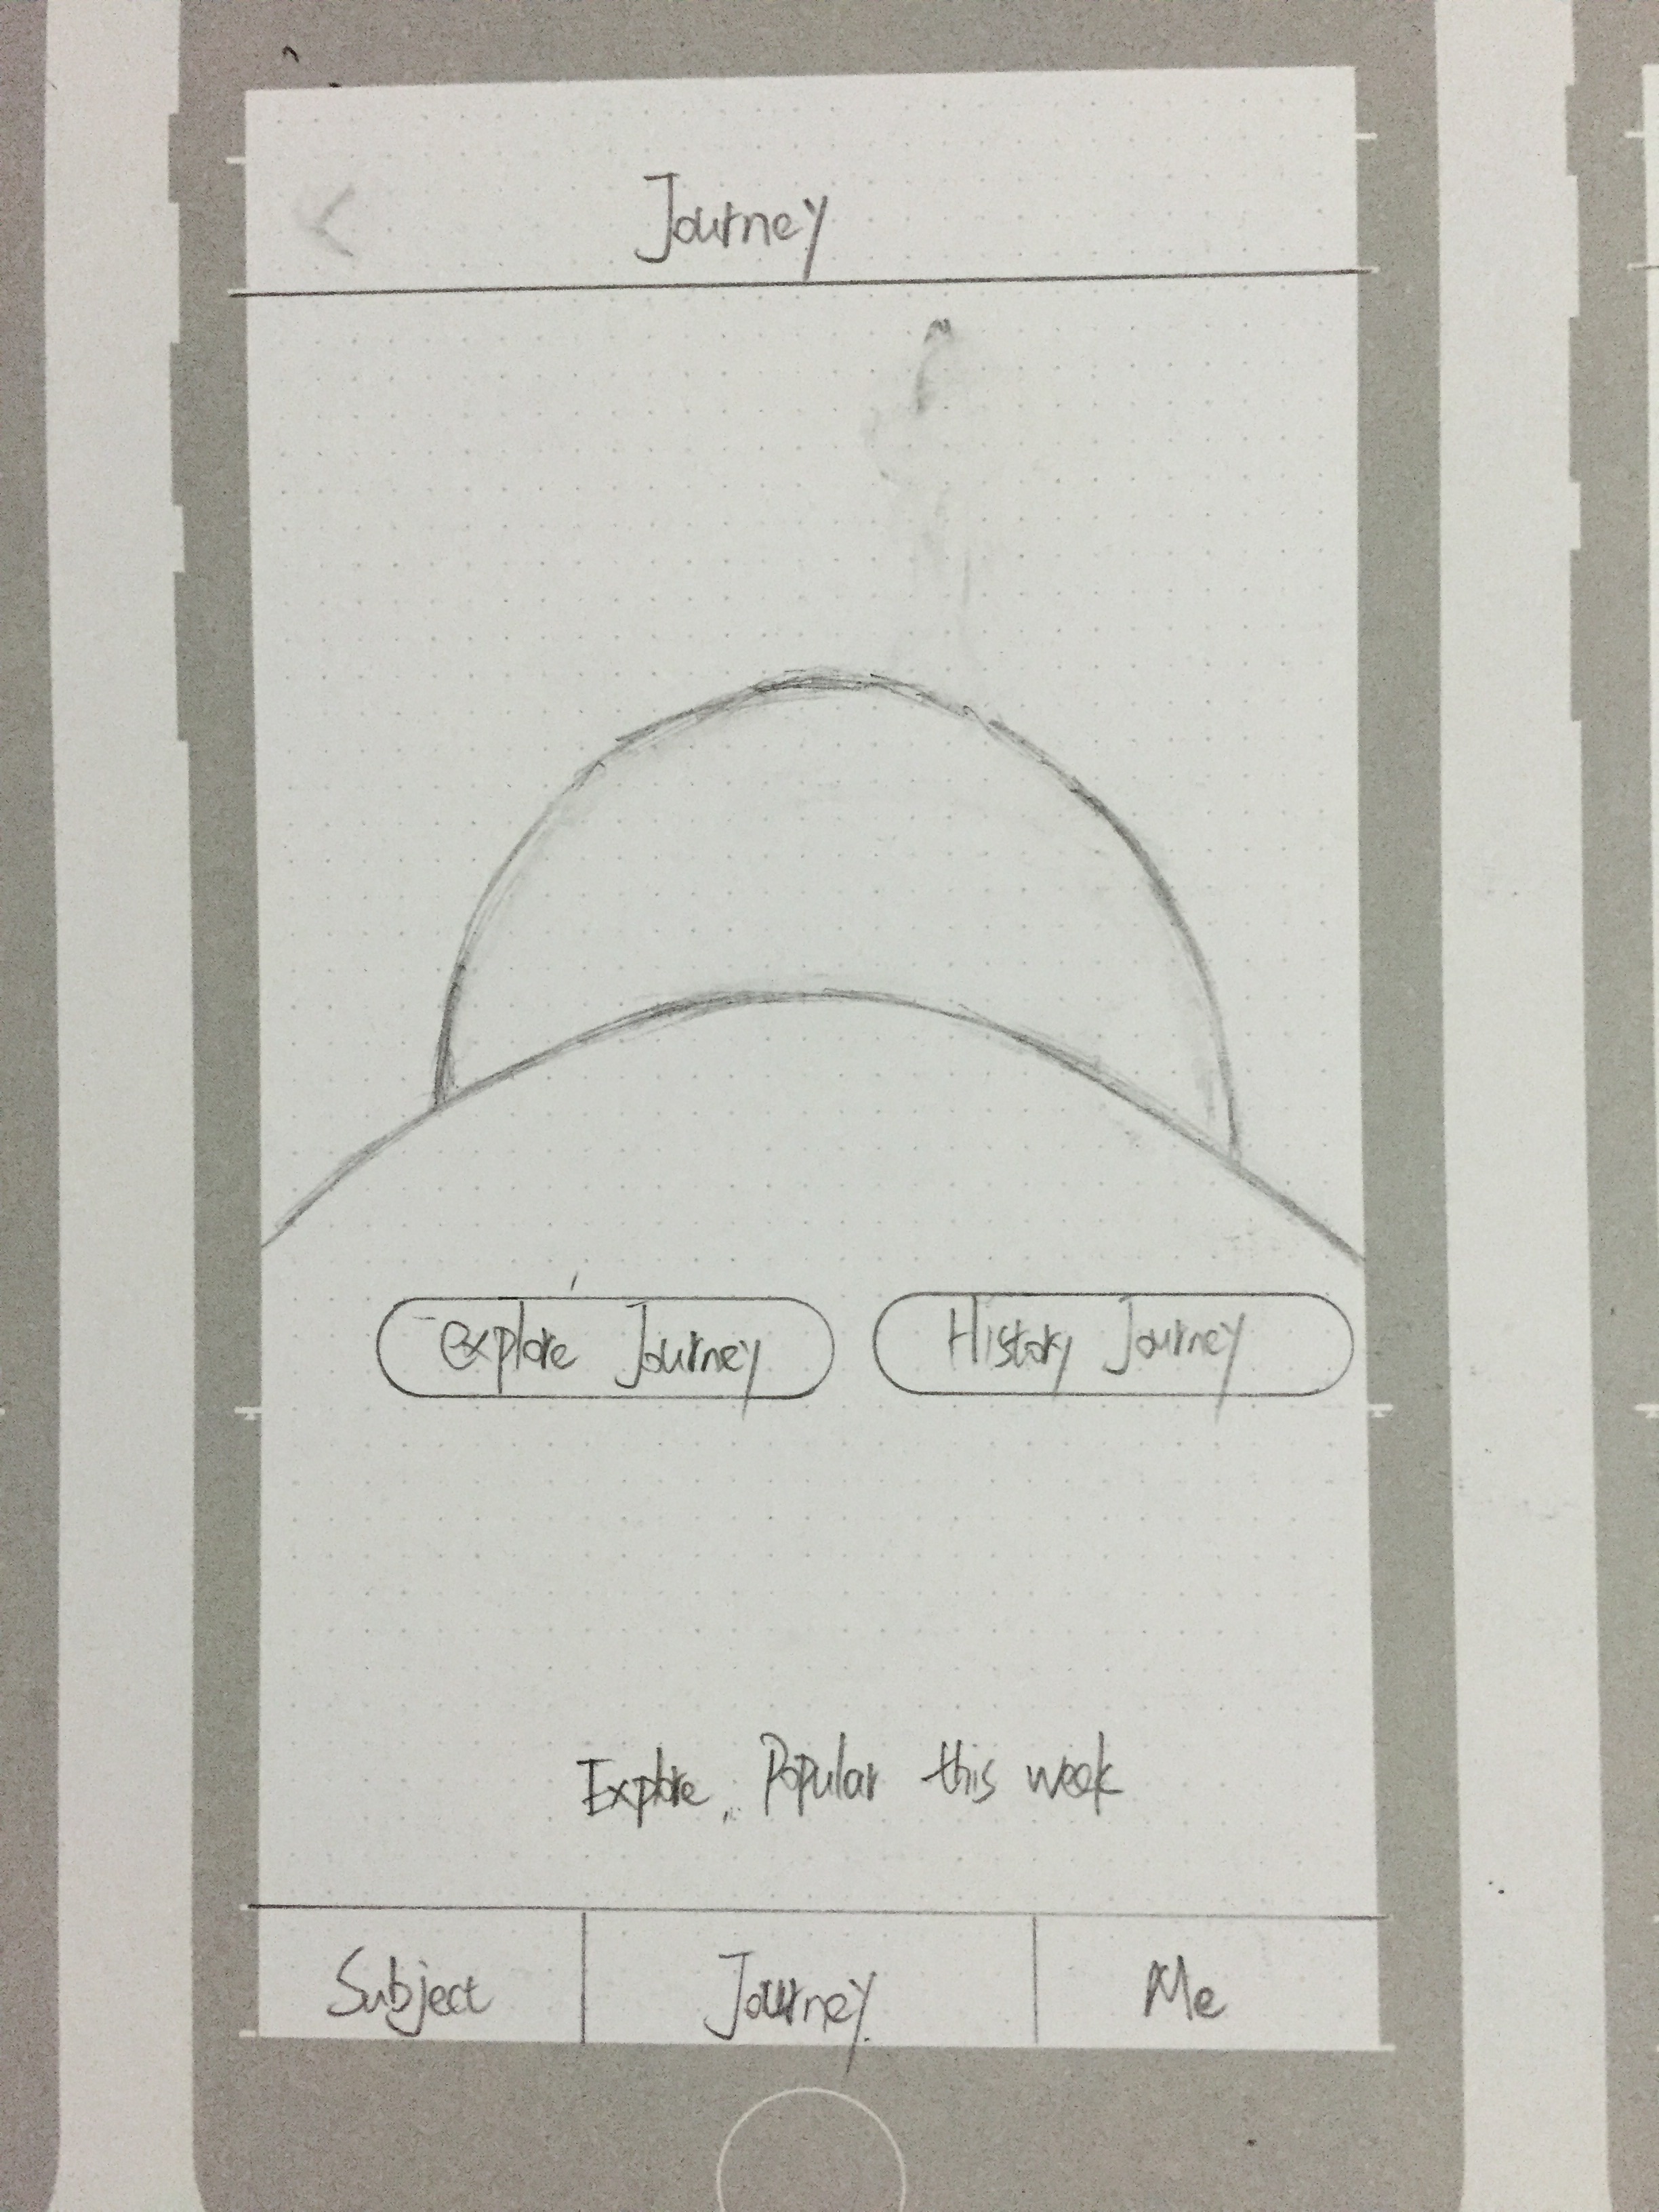 Journey
Explore Journey
History Journey
Explore, Popular this week
Subject
Journey
Me